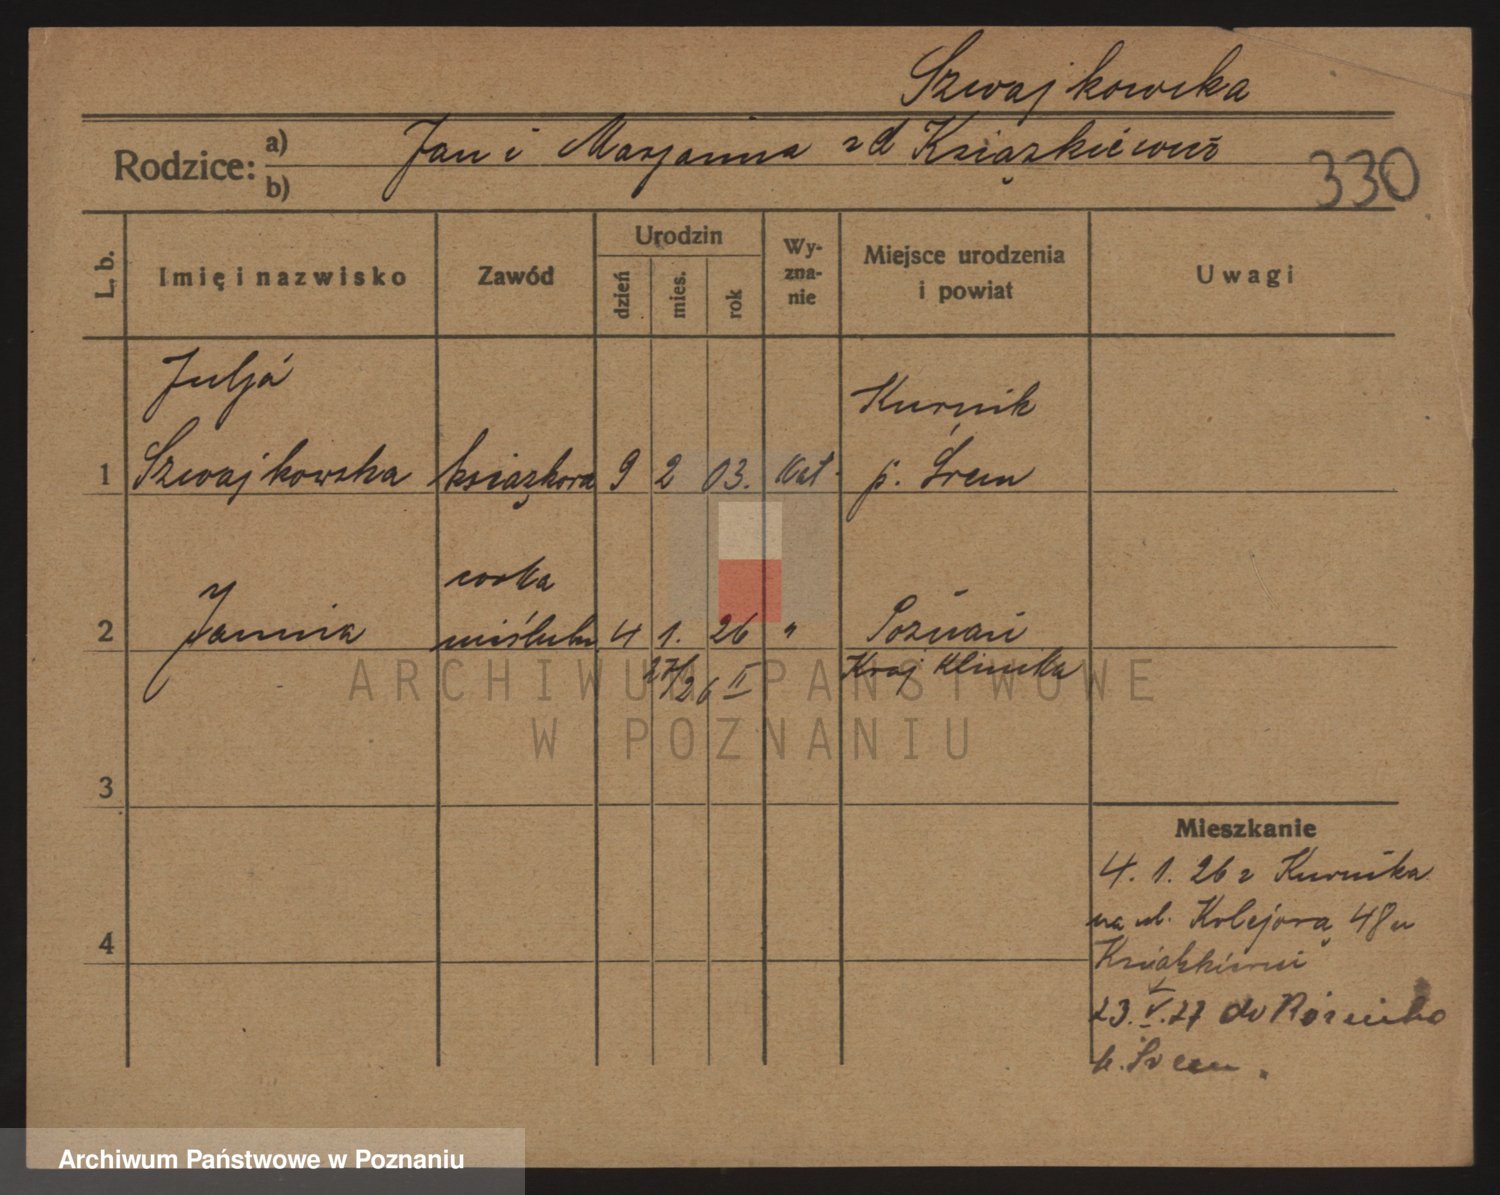 Szwajkowska
Rodzice: a) Jan i Marjanna zd Książkiewicz
b)
330
L. b. Imię i nazwisko Zawód Urodzin dzień mies. rok Wy-zna-nie Miejsce urodzenia i powiat Uwagi
Juljá
Kurnik
1 Szwajkowska książkowa 9 2 03. kat. p. Śrem
córka
2 Janina nieślubn 4 1. 26 " Poznań
27/2 6 II Kraj Klinika
ARCHIWUM PAŃSTWOWE
W POZNANIU
3
Mieszkanie
4. 1. 26 z Kurnika
na ul. Kolejową 48 u
4
23. V. 27 do
p. Śrem.
Archiwum Państwowe w Poznaniu